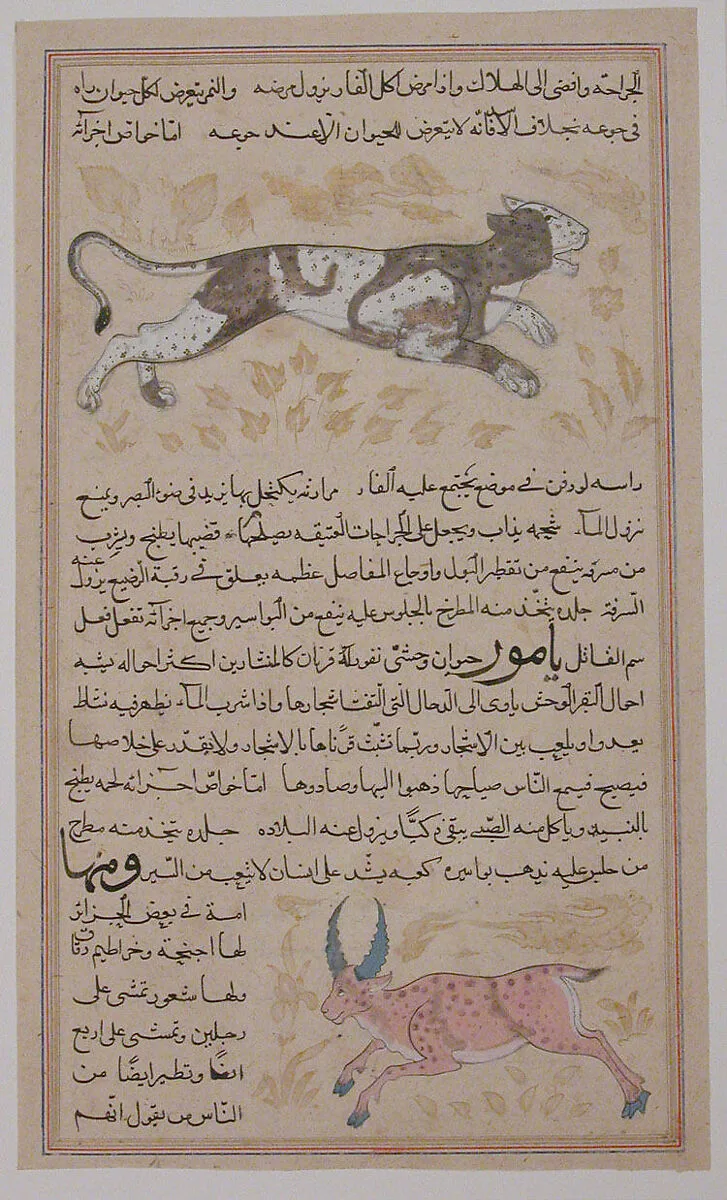 الجراحة وافضى الى الهلاك واذا مرض اكل الفار نزول مرضه والنمر يتعرض لكل حيوان راه
فى جوعه بخلاف الاسد فانه لا يتعرض للحيوان الا عند جوعه اما خواص اجزائه
راسه لو دفن فى موضع يجتمع عليه الفار مرارته يكتحل بها يزيد فى ضوء البصر ويمنع
نزول الماء شحمه يذاب ويجعل على الجراحات العتيقه يصلحها قضيبها يطبخ ويشرب
من مرقه ينفع من تقطير البول واوجاع المفاصل عظمه يعلق فى رقبة الرضيع يزول عنه
السرفة جلده يتخذ منه المطرح بالجلوس عليه ينفع من البواسير وجميع اجزائه تفعل فعل
سم القاتل يامور حيوان وحشى نفور له قرنان كالمنشارين اكثر احواله يشبه
احوال البقر الوحش ياوى الى الدحال التى التفت اشجارها واذا شرب الماء يظهر فيه نشاط
يعدو او يلعب بين الاشجار وربما تشبث قرناها بالاشجار ولا يقدر على خلاصها
فيصيح فيسمع الناس صياحها ذهبوا اليها وصادوها اما خواص اجزائه لحمه يطبخ
بالنبيذ وياكل منه الصبى يبقى ذكيا ويزول عنه البلاده جلده يتخذ منه مطرح
من جلس عليه يذهب بواسيره كعبه يشد على انسان لا يتعب من السير ومنها
امة فى بعض الجزائر
لها اجنحة وخراطيم دقاق
ولها شعور تمشى على
رجلين وتمشى على اربع
ايضا وتطير ايضا من
الناس من يقول انهم